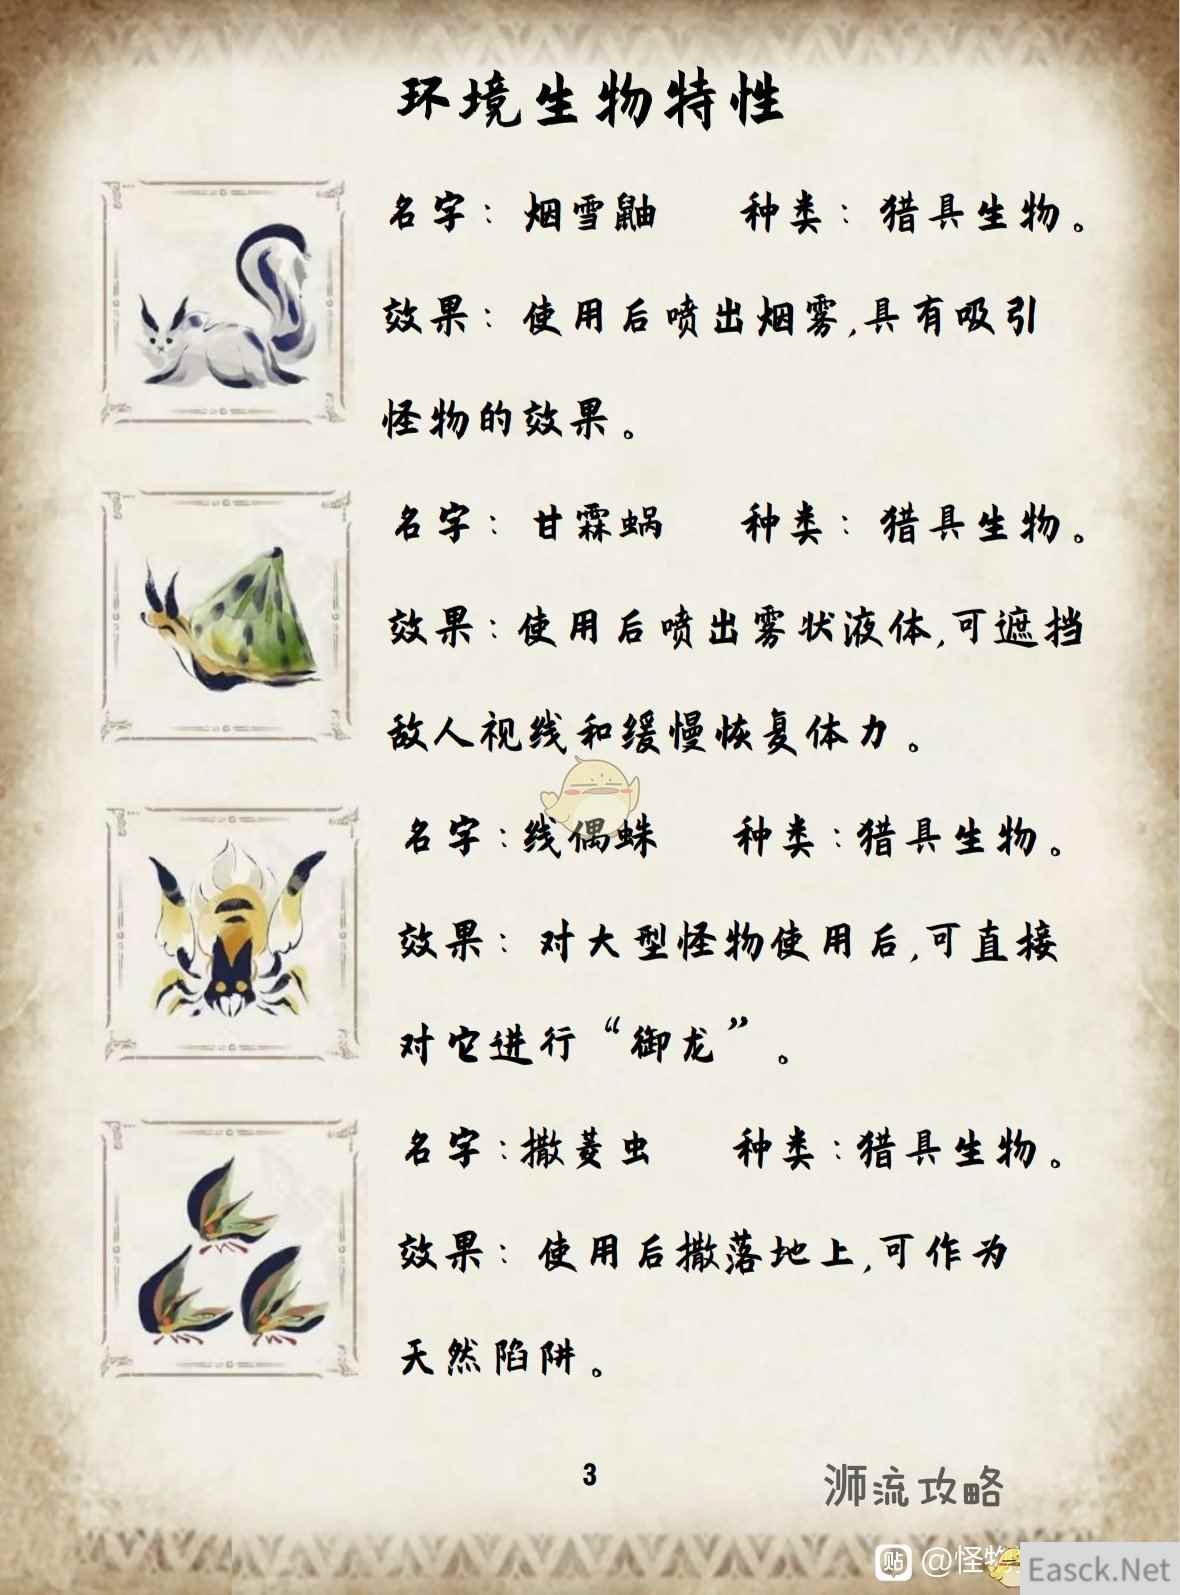 环境生物特性
名字：烟雪鼬 种类：猎具生物。
效果：使用后喷出烟雾,具有吸引
怪物的效果。
名字：甘霖蜗 种类：猎具生物。
效果：使用后喷出雾状液体,可遮挡
敌人视线和缓慢恢复体力。
名字：线偶蛛 种类：猎具生物。
效果：对大型怪物使用后,可直接
对它进行“御龙”。
名字：撒菱虫 种类：猎具生物。
效果：使用后撒落地上,可作为
天然陷阱。
3
浉流攻略
贴 @怪物
Easck.Net